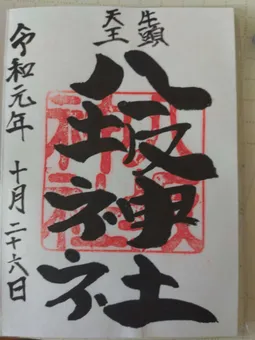 牛頭
天王
八坂神社
令和元年 十月二十六日